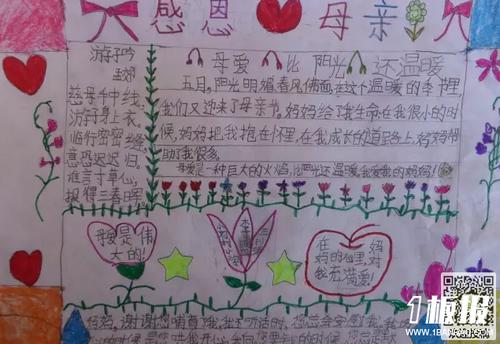 感恩母亲
游子吟
慈母手中线,
游子身上衣。
临行密密缝
意恐迟迟归。
谁言寸草心,
报得三春晖
母爱比阳光还温暖
五月,阳光明媚,春风佛面,在这个温暖的季节里,
我们又迎来了母亲节。妈妈给了我生命在我很小的时
候,妈妈把我抱在怀里,在我成长的道路上,妈妈帮
助了我很多。
母爱是一种巨大的火焰,比阳光还温暖,我爱我的妈妈!
母爱是伟
大的!
在妈
妈的心里,对
我充满爱!
1板报
WWW.1BANBAO.COM